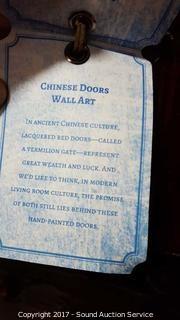 CHINESE DOORS
WALL ART
IN ANCIENT CHINESE CULTURE,
LACQUERED RED DOORS—CALLED
A VERMILION GATE—REPRESENT
GREAT WEALTH AND LUCK. AND
WE'D LIKE TO THINK, IN MODERN
LIVING ROOM CULTURE, THE PROMISE
OF BOTH STILL LIES BEHIND THESE
HAND-PAINTED DOORS.
Copyright 2017 - Sound Auction Service